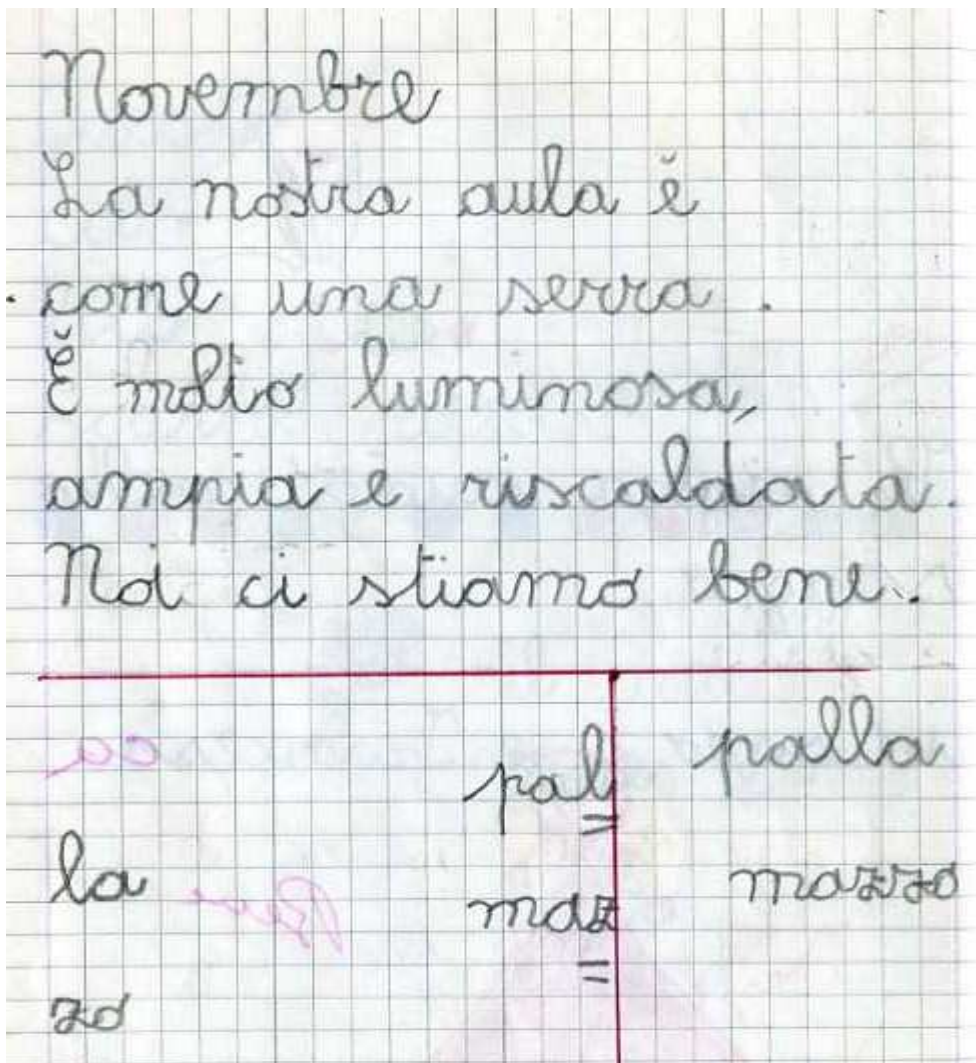 Novembre
La nostra aula è
come una serra.
È molto luminosa,
ampia e riscaldata.
Noi ci stiamo bene.
pal= palla
la
maz= mazzo
zo